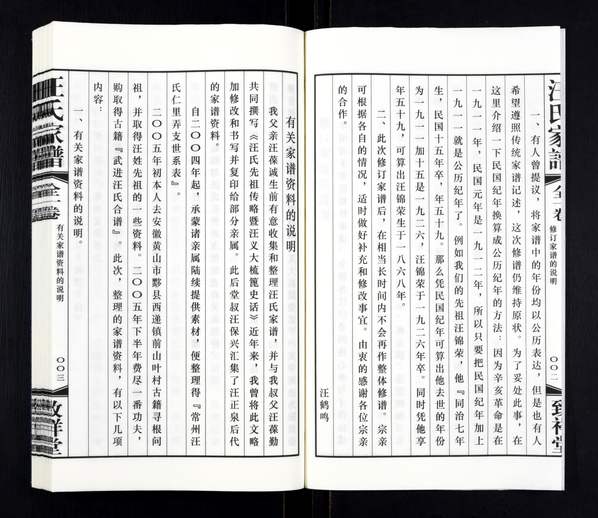 汪氏家譜 全一卷 修订家谱的说明 〇〇二 致祥堂
一、有人曾提议，将家谱中的年份均以公历表达，但是也有人
希望遵照传统家谱记述，这次修谱仍维持原状。为了妥处此事，在
这里介绍一下民国纪年换算成公历纪年的方法：因为辛亥革命是在
一九一一年，民国元年是一九一二年，所以只要把民国纪年加上
一九一一就是公历纪年了。例如我们的先祖汪锦荣，他『同治七年
生，民国十五年卒，年五十九。那么凭民国纪年可算出他去世的年份
为一九一一加十五是一九二六，汪锦荣于一九二六年卒。同时凭他享
年五十九，可算出汪锦荣生于一八六八年。
二、此次修订家谱后，在相当长时间内不会再作整体修谱。宗亲
可根据各自的情况，适时做好补充和修改事宜。由衷的感谢各位宗亲
的合作。
汪鹤鸣
有关家谱资料的说明
我父亲汪葆诚生前有意收集和整理汪氏家谱，并与我叔父汪葆勤
共同撰写《汪氏先祖传略暨汪义大梳篦史话》近年来，我曾将此文略
加修改和书写并复印给部分亲属。此后堂叔汪保兴汇集了汪正泉后代
的家谱资料。
自二〇〇四年起，承蒙诸亲属陆续提供素材，便整理得『常州汪
氏仁里弄支世系表』。
二〇〇五年初本人去安徽黄山市黟县西递镇前山叶村古籍寻根问
祖，并取得汪姓先祖的一些资料。二〇〇五年下半年费尽一番功夫，
购取得古籍『武进汪氏合谱』。此次，整理的家谱资料，有以下几项
内容：
一、有关家谱资料的说明。
汪氏家譜 全一卷 有关家谱资料的说明 〇〇三 致祥堂